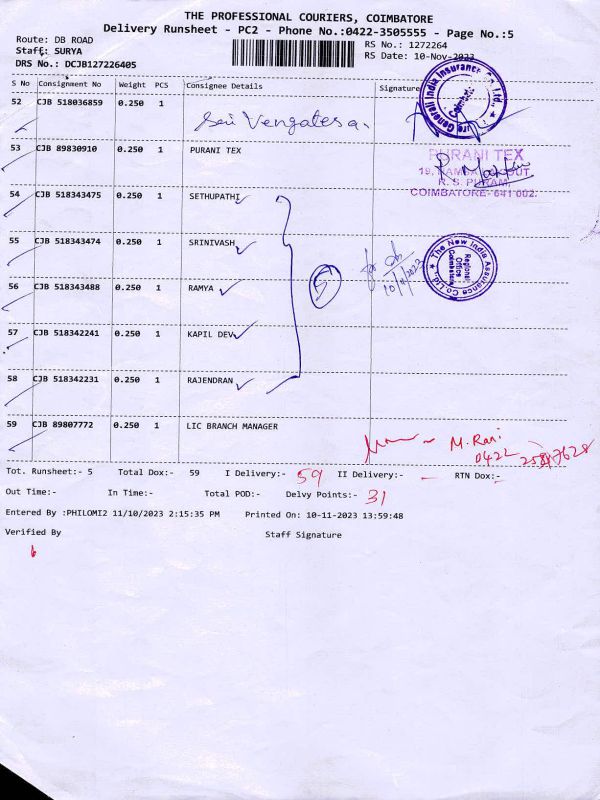 THE PROFESSIONAL COURIERS, COIMBATORE
Delivery Runsheet - PC2 - Phone No.:0422-3505555 - Page No.:5
Route: DB ROAD
RS No.: 1272264
Staff: SURYA
RS Date: 10-Nov-2023
DRS No.: DCJB127226405
S No Consignment No Weight PCS Consignee Details Signature
52 CJB 518036859 0.250 1
Sri Vengatesa.
Generali India Insurance Co. Ltd.
53 CJB 89830910 0.250 1 PURANI TEX
PURANI TEX
R. S. PURAM,
COIMBATORE- 641 002.
54 CJB 518343475 0.250 1 SETHUPATHI
55 CJB 518343474 0.250 1 SRINIVASH
5
for
10/11/2023
The New India Assurance Co. Ltd.
Regional
Office
Coimbatore
56 CJB 518343488 0.250 1 RAMYA
57 CJB 518342241 0.250 1 KAPIL DEV
58 CJB 518342231 0.250 1 RAJENDRAN
59 CJB 89807772 0.250 1 LIC BRANCH MANAGER
M. Rani
0422
Tot. Runsheet:- 5 Total Dox:- 59 I Delivery:- 59 II Delivery:- - RTN Dox:-
Out Time:- In Time:- Total POD:- Delvy Points:- 31
Entered By :PHILOMI2 11/10/2023 2:15:35 PM Printed On: 10-11-2023 13:59:48
Verified By Staff Signature